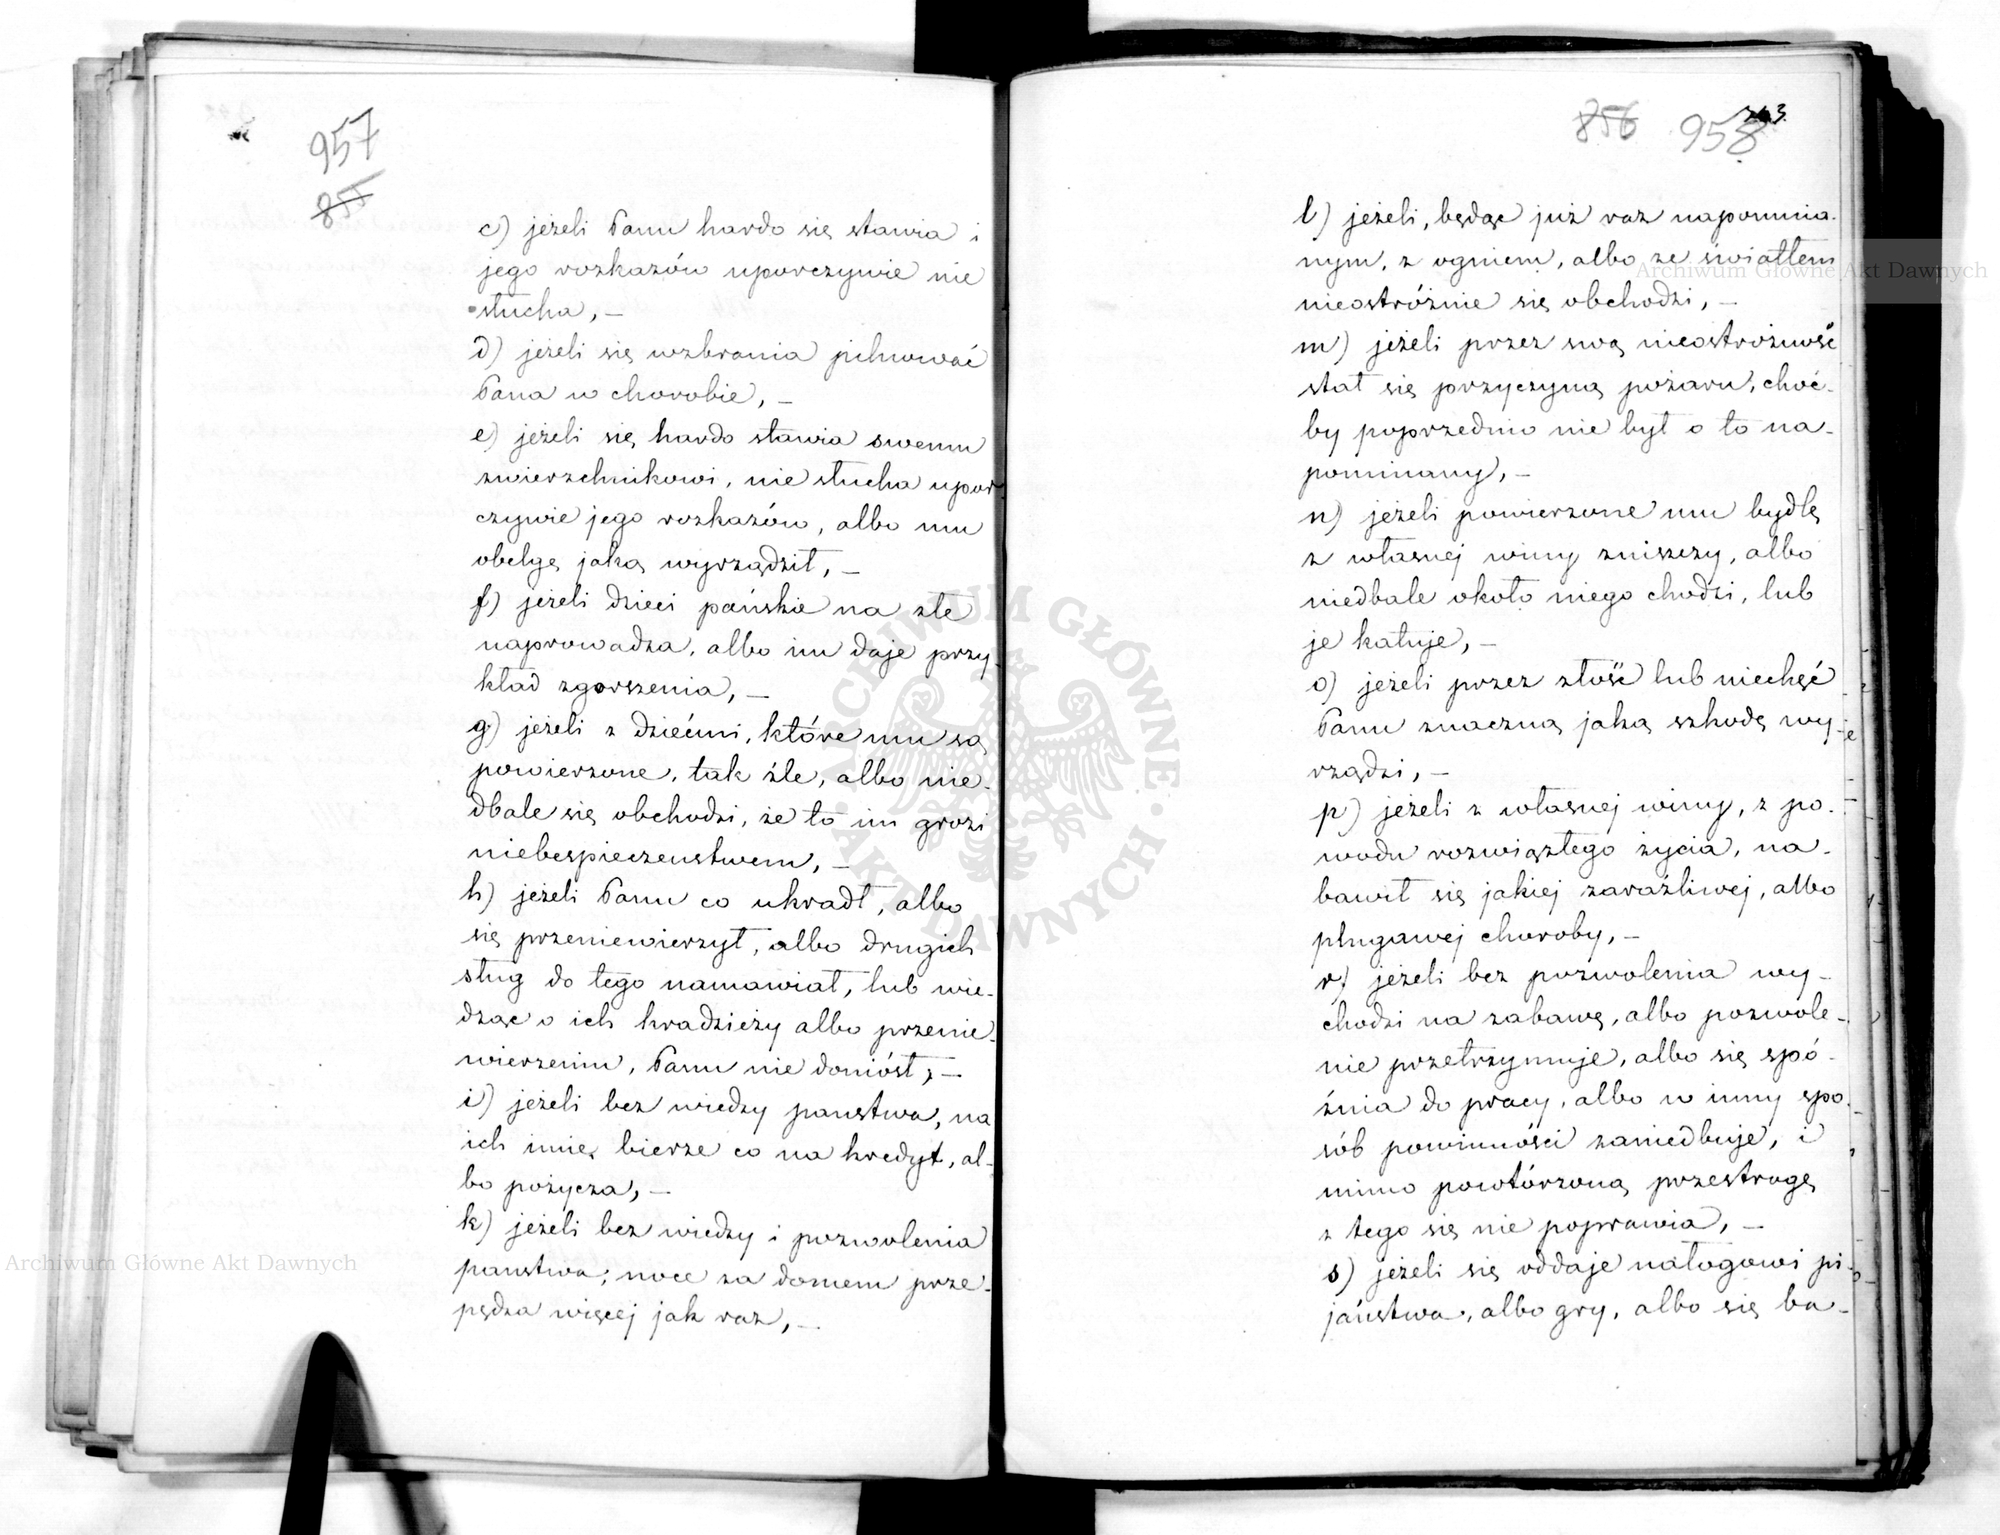 957
855
c) jeżeli Panu hardo się stawia i
jego rozkazów uporczywie nie
słucha, —
d) jeżeli się wzbrania pilnować
Pana w chorobie, —
e) jeżeli się hardo stawia swemu
zwierzchnikowi, nie słucha upor
czywie jego rozkazów, albo mu
obelgę jaką wyrządził, —
f) jeżeli dzieci pańskie na złe
naprowadza, albo im daje przy-
kład zgorszenia, —
g) jeżeli z dziećmi, które mu są
powierzone, tak źle, albo nie-
dbale się obchodzi, że to im grozi
niebespieczenstwem, —
h) jeżeli Panu co ukradł, albo
się przeniewierzył, albo drugich
sług do tego namawiał, lub wie-
dząc o ich kradzieży albo przenie-
wierzeniu, Panu nie doniósł, —
i) jeżeli bez wiedzy panstwa, na
ich imię bierze co na kredyt, al-
bo pożycza, —
k) jeżeli bez wiedzy i pozwolenia
panstwa, noce za domem prze-
pędza więcej jak raz, —
856 958
l) jeżeli, będąc już raz napomnia-
nym, z ogniem, albo ze światłem
nieostróżnie się obchodzi, —
m) jeżeli przez swą nieostrożność
stał się przyczyną pożaru, choć-
by poprzednio nie był o to na-
pominany, —
n) jeżeli powierzone mu bydlę
z własnej winy zniszczy, albo
niedbale około niego chodzi, lub
je katuje, —
o) jeżeli przez złość lub niechęć
Panu znaczną jaką szkodę wy-
rządzi, —
p) jeżeli z własnej winy, z po-
wodu rozwiązłego życia, na-
bawił się jakiej zaraźliwej, albo
plugawej choroby, —
r) jeżeli bez pozwolenia wy-
chodzi na zabawę, albo pozwole-
nie przetrzymuje, albo się spó-
źnia do pracy, albo w inny spo-
sób powinności zaniedbuje, i
mimo powtórzoną przestrogę
z tego się nie poprawia, —
s) jeżeli się oddaje nałogowi pi-
jaństwa, albo gry, albo się ba-
Archiwum Główne Akt Dawnych
Archiwum Główne Akt Dawnych
ARCHIWUM GŁÓWNE
AKT DAWNYCH